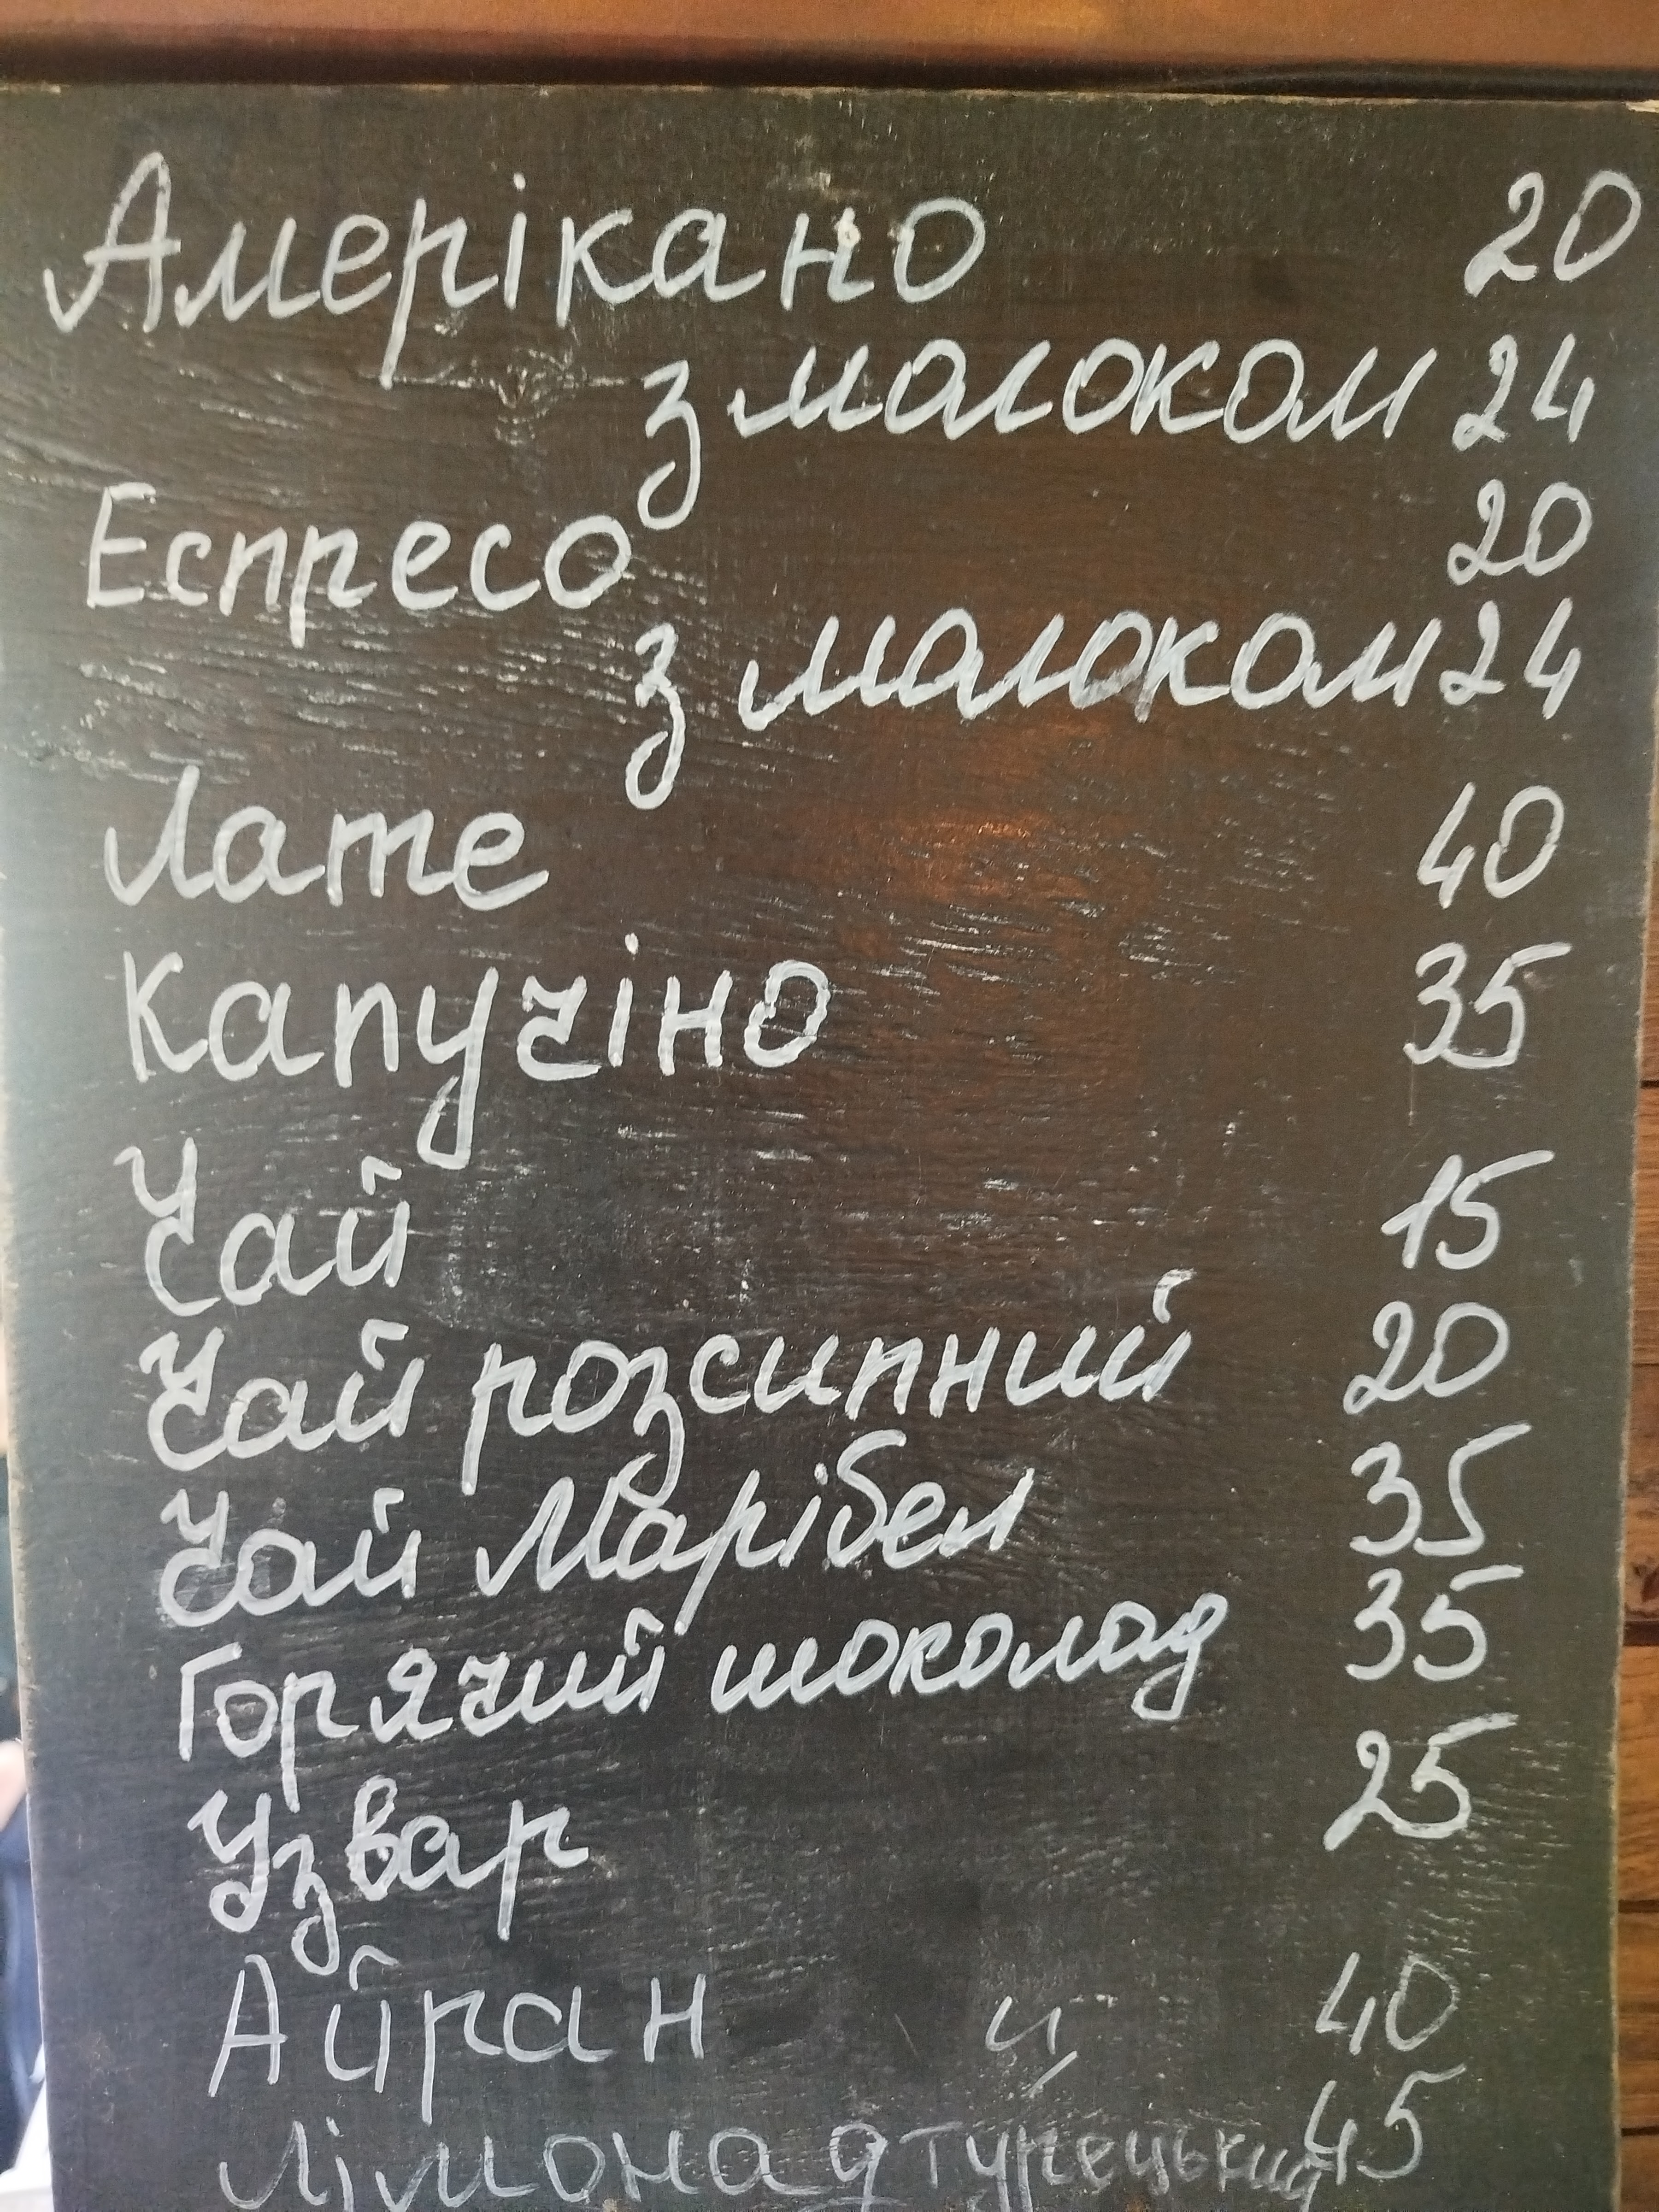 Амерікано 20
з молоком 24
Еспресо 20
з молоком 24
Лате 40
Капучіно 35
Чай 15
Чай розсипний 20
Чай Марібел 35
Горячий шоколад 35
Узвар 25
Айран 40
Лімонад турецький 45